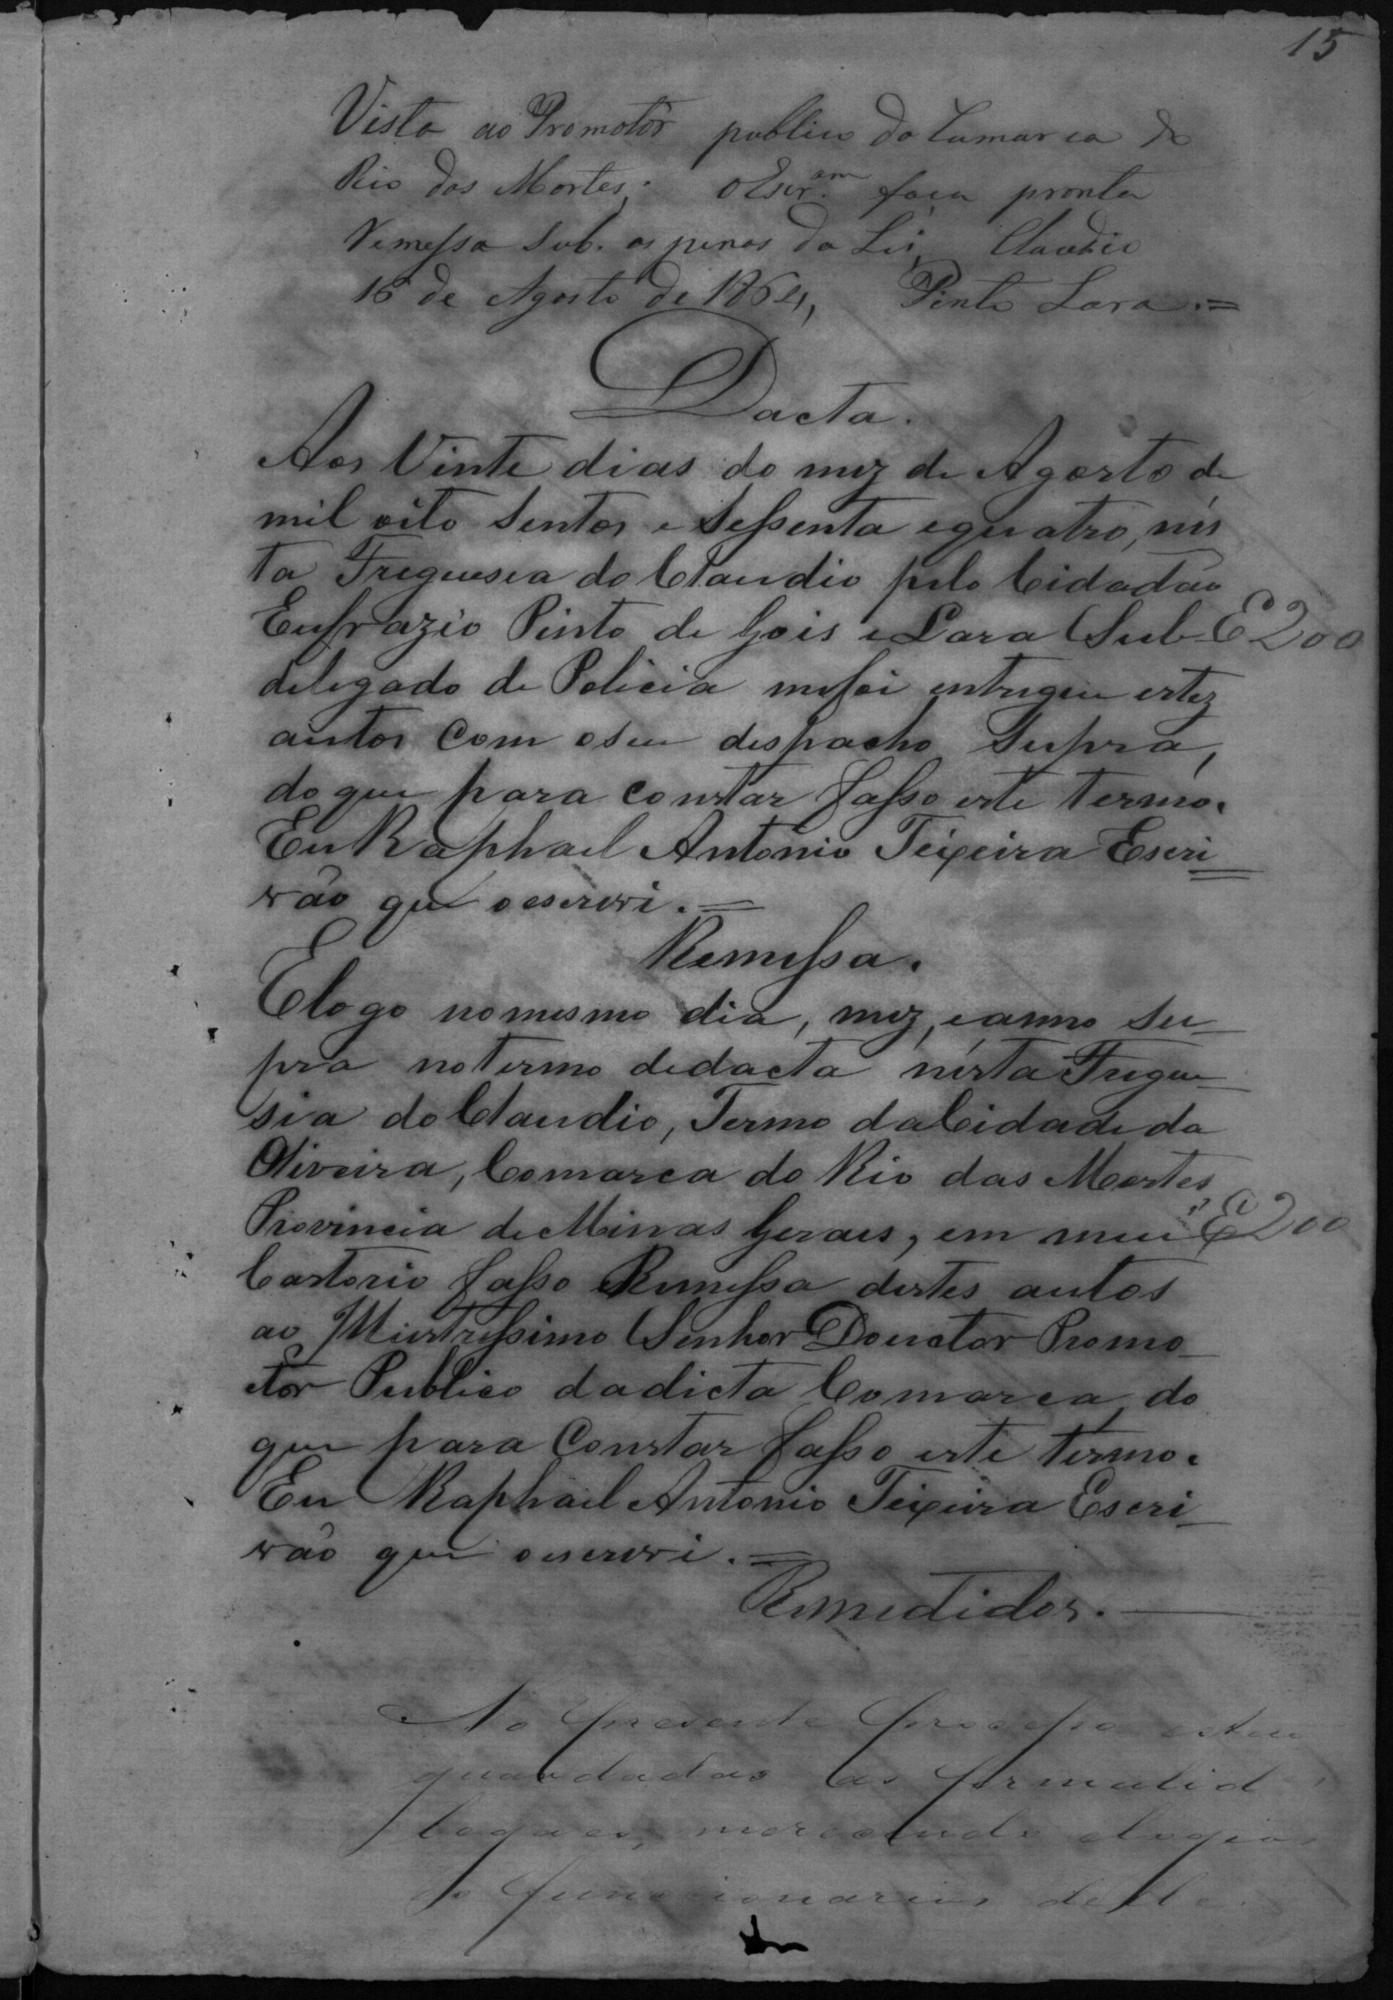 15
Vista ao Promotor publico da Comarca do
Rio das Mortes; o Escr.am faça prompta
Remessa sub. as penas da Lei, Claudio
16 de Agosto de 1864, Pinto Lara.=
Dacta.
Aos Vinte dias do mez de Agosto de
mil oito Sentos e Sessenta equatro, nes
ta Freguesia do Claudio pelo Cidadão
Eufrazio Pinto de Gois e Lara Sub- E200
delegado de Policia mefoi entregue estez
autos Com oseu despacho Supra,
do que para constar fasso este termo.
Eu Raphael Antonio Teixeira Escri
vão que oescrevi.=
Remessa.
Elogo nomesmo dia, mez, eanno Su_
pra notermo dedacta nesta Fregue_
sia do Claudio, Termo daCidadeda
Oliveira, Comarca do Rio das Mortes,
Provincia deMinas Gerais, em meu E200
Cartorio fasso Remessa destes autos
ao Illustrissimo Senhor Douctor Promo_
ctor Publico dadicta Comarca do
que para Constar fasso este termo.
Eu Raphael Antonio Teixeira Escri_
vão que oescrevi.=
Remetidos.
No presente processo
guardadas as formalid
legaes, merecendo elogios
o funcionario